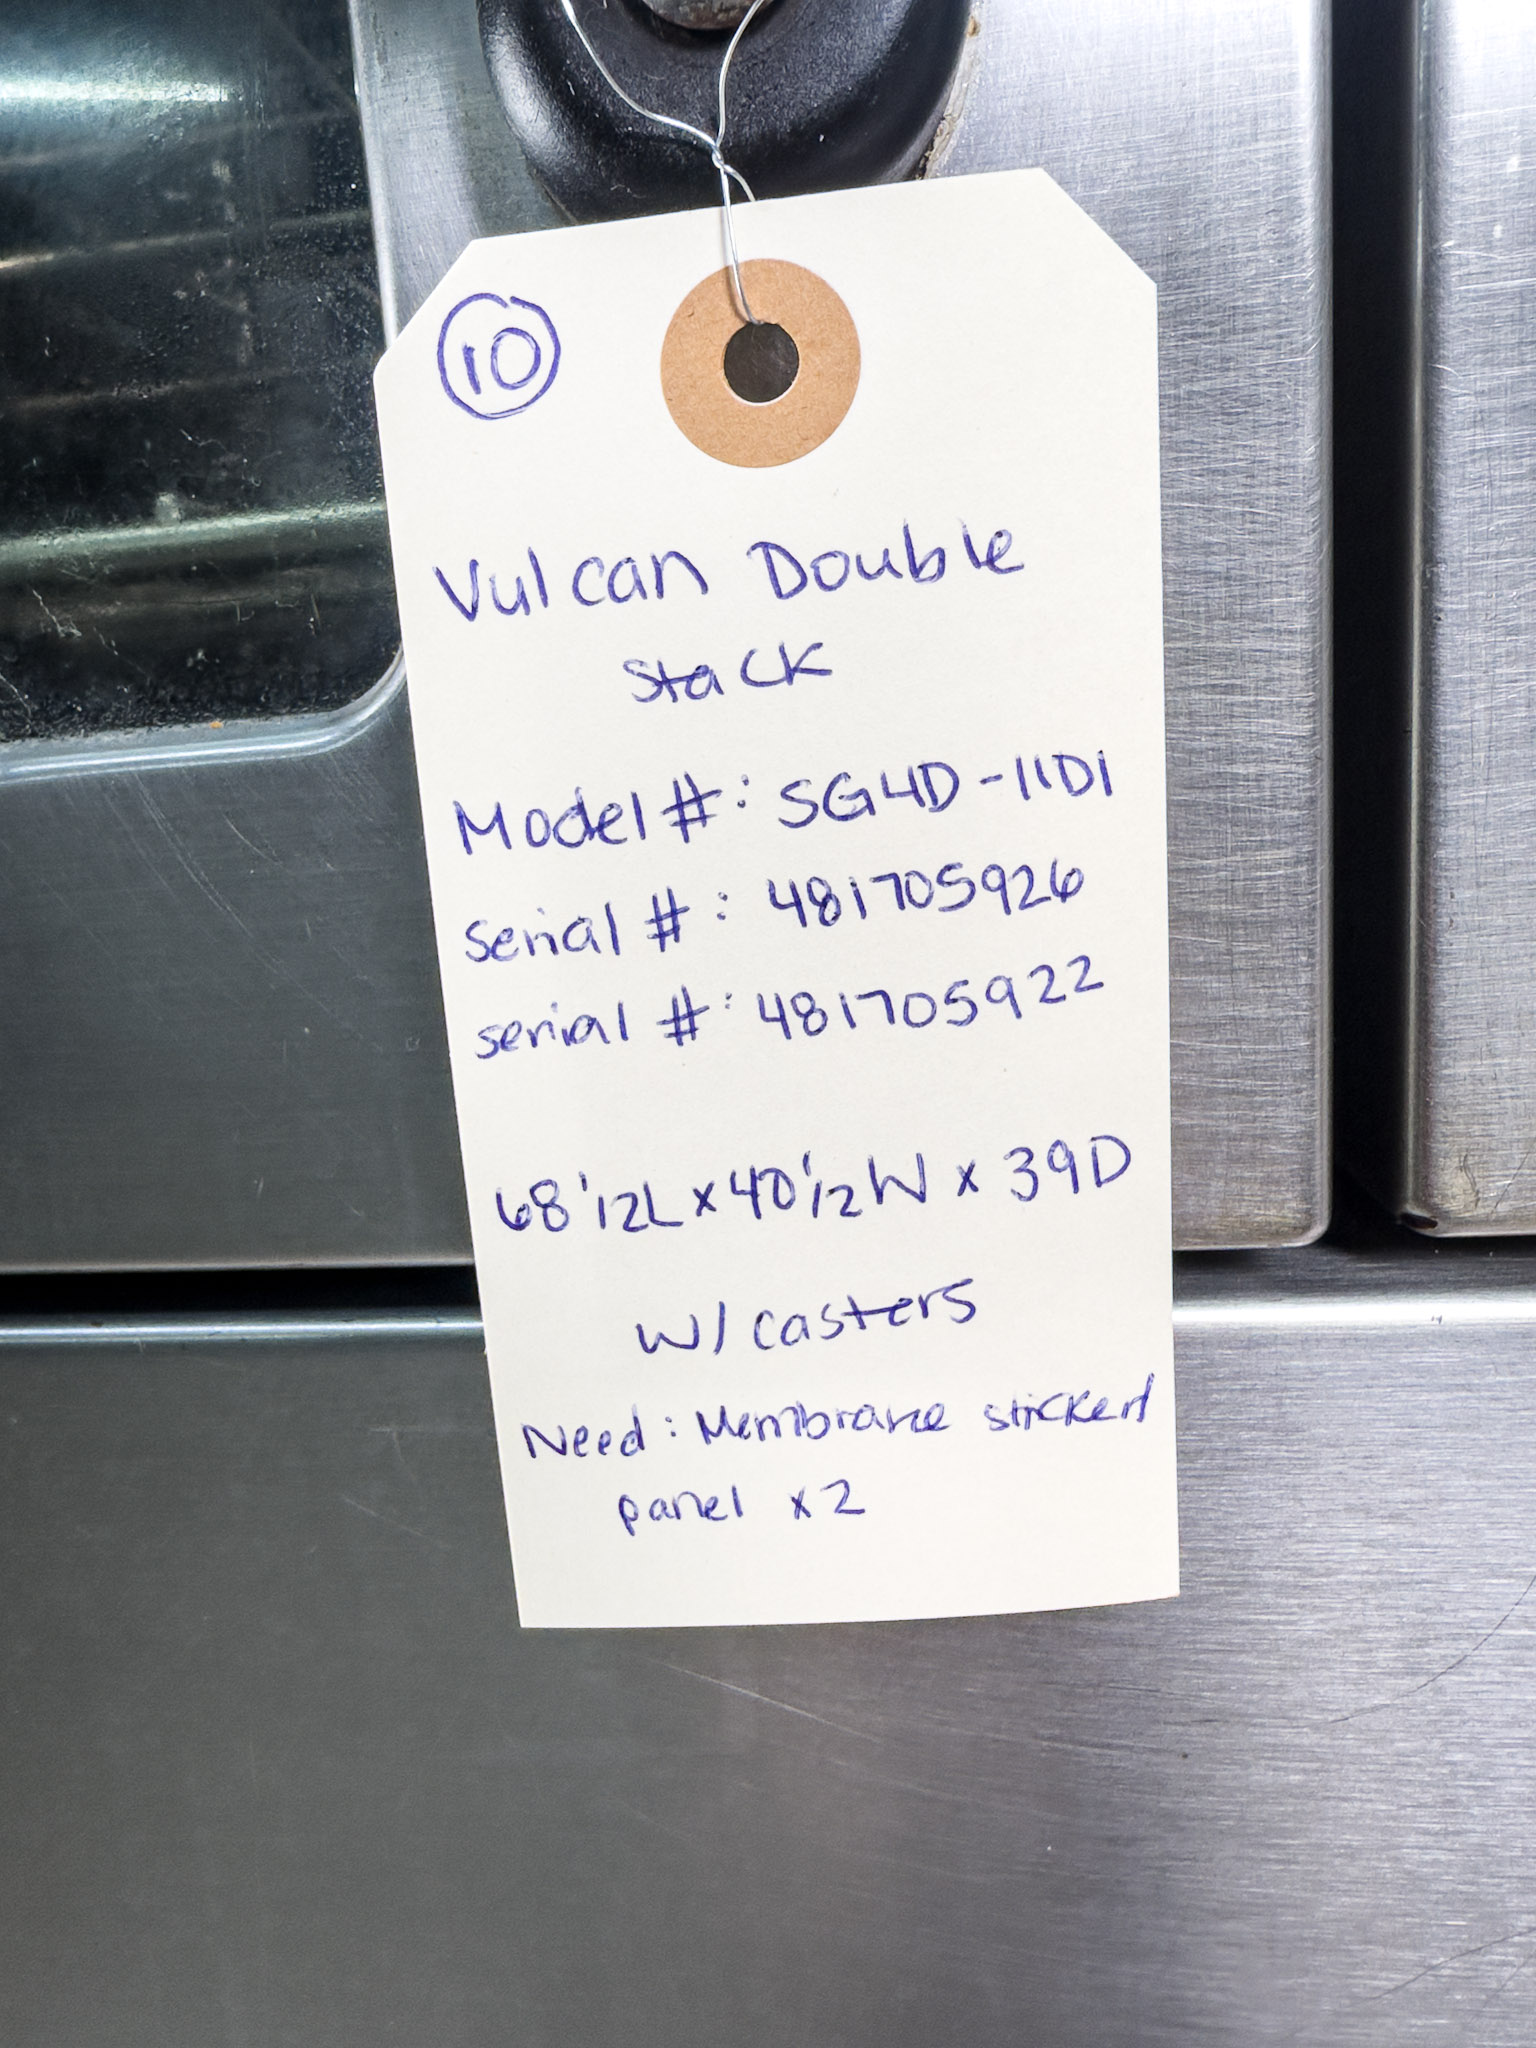 10
Vulcan Double
Stack
Model #: SG4D-11D1
Serial #: 481705926
serial #: 481705922
68 1/2L x 40 1/2W x 39D
W/ casters
Need: Membrane sticker/
panel x2